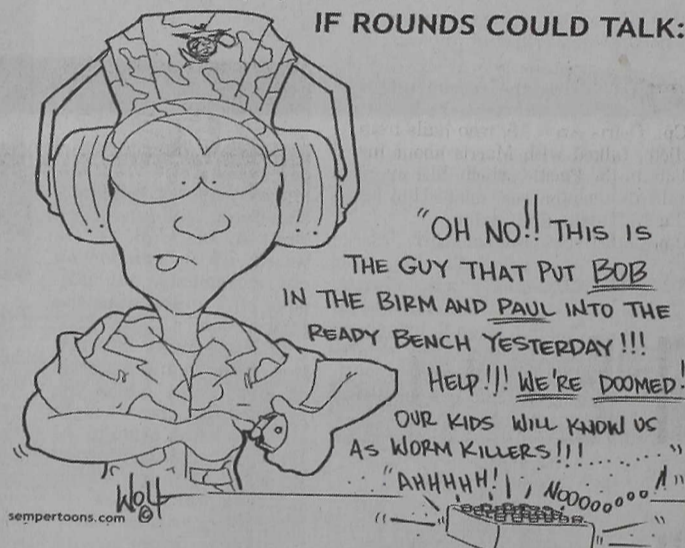 IF ROUNDS COULD TALK:
"OH NO!! THIS IS
THE GUY THAT PUT BOB
IN THE BIRM AND PAUL INTO THE
READY BENCH YESTERDAY!!!
HELP!!! WE'RE DOOMED!
OUR KIDS WILL KNOW US
AS WORM KILLERS!!!........"
"AHHHHH!!!! NOOOOOOOO!!"
Wolf ©
sempertoons.com